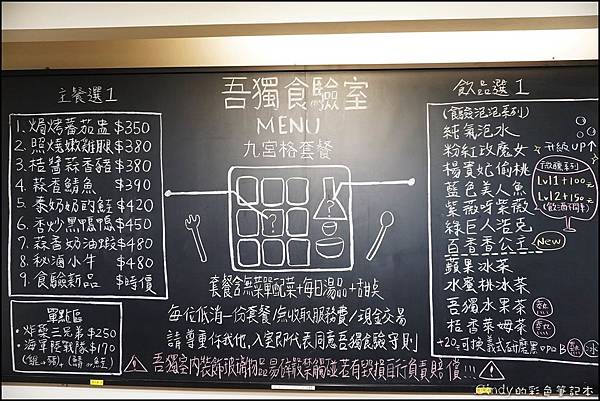 主餐選1
1. 焗烤蕃茄盅 $350
2. 照燒嫩雞腿 $380
3. 桔醬蒜香豬 $380
4. 蒜香鯖魚 $390
5. 柰奶奶的鮭 $420
6. 香炒黑鴨鴨 $450
7. 蒜香奶油蝦 $480
8. 秋滷小牛 $480
9. 食驗新品 $時價
單點區
・炸藥三兄弟 $250
・海軍陸戰隊 $170
吾獨食驗室
MENU
九宮格套餐
?
?
套餐含無菜單配菜+每日湯品+甜點
每位低消一份套餐/無收取服務費/現金交易
請尊重你我他,入室即代表同意吾獨食驗守則
吾獨室內裝飾玻璃物品易碎嚴禁觸碰若有毀損自行負責賠償!!!
飲品選1
(食驗泡泡系列)
純氧泡水
粉紅政魔女
楊貴妃偷桃
藍色美人魚
紫薇呀紫薇
綠巨人浩克
百香香公主 New
蘋果冰茶
水蜜桃冰茶
吾獨水果茶 熱
桔香萊姆茶 熱
+20可換義式研磨黑
升級UP↑
微醺系列
Lv1+100元
Lv2+150元
Cindy的彩色筆記本